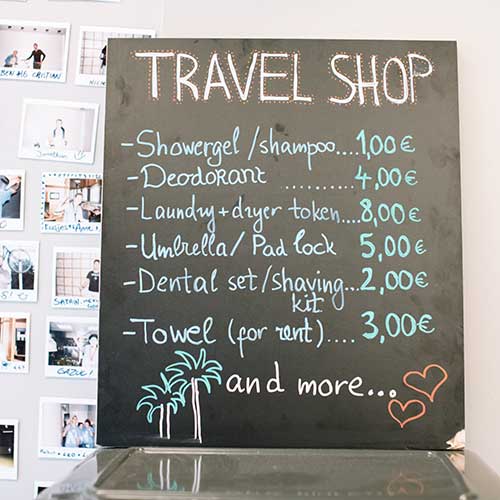 TRAVEL SHOP
-Showergel/shampoo....1,00€
-Deodorant ..........4,00€
-Laundry+dryer token....8,00€
-Umbrella/Pad lock 5,00€
-Dental set/shaving kit....2,00€
-Towel (for rent)....3,00€
and more...